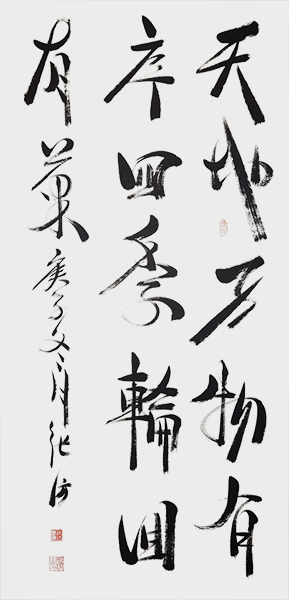 天地万物有
序四季輪回
有菓 庚子冬月 张